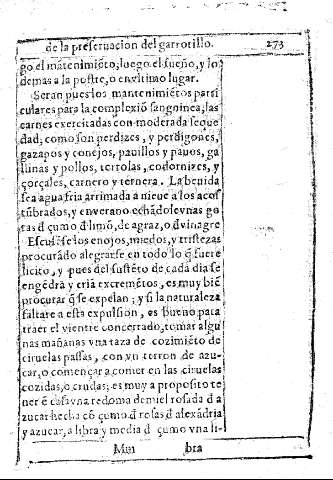 de la preseruacion del garrotillo. 273
go el mãtenimiẽto, luego el sueño, y lo
demas a la postre, o en vltimo lugar.
Seran pues los mantenimiẽtos parti
culares para la complexiõ sanguinea; las
carnes exercitadas con moderada seque
dad; como son perdizes, y perdigones,
gazapos y conejos, pauillos y pauos, ga
llinas y pollos, tortolas, codornizes, y
çorçales, carnero y ternera. La beuida
sea agua fria arrimada a nieue a los acos
tũbrados, y en verano echãdole vnas go
tas d̃ çumo d̃ limõ, de agraz, o d̃ vinagre
Escusẽse los enojos, miedos, y tristezas
procurãdo alegrarse en todo lo q̃ fuere
licito, y pues del sustẽto de cada dia se
engẽdrã y criã excremẽtos, es muy biẽ
procurar q̃ se expelan; y si la naturaleza
faltare a esta expulsion, es bueno para
traer el vientre concertado, tomar algu
nas mañanas vna taza de cozimiẽto de
ciruelas passas, con vn terron de azu-
car, o començar a comer en las ciruelas
cozidas, o crudas; es muy a proposito te
ner ẽ casa vna redoma de miel rosada d̃ a
zucar hecha cõ çumo d̃ rosas d̃ alexãdria
y azucar, a libra y media d̃ çumo vna li-
Mm bra